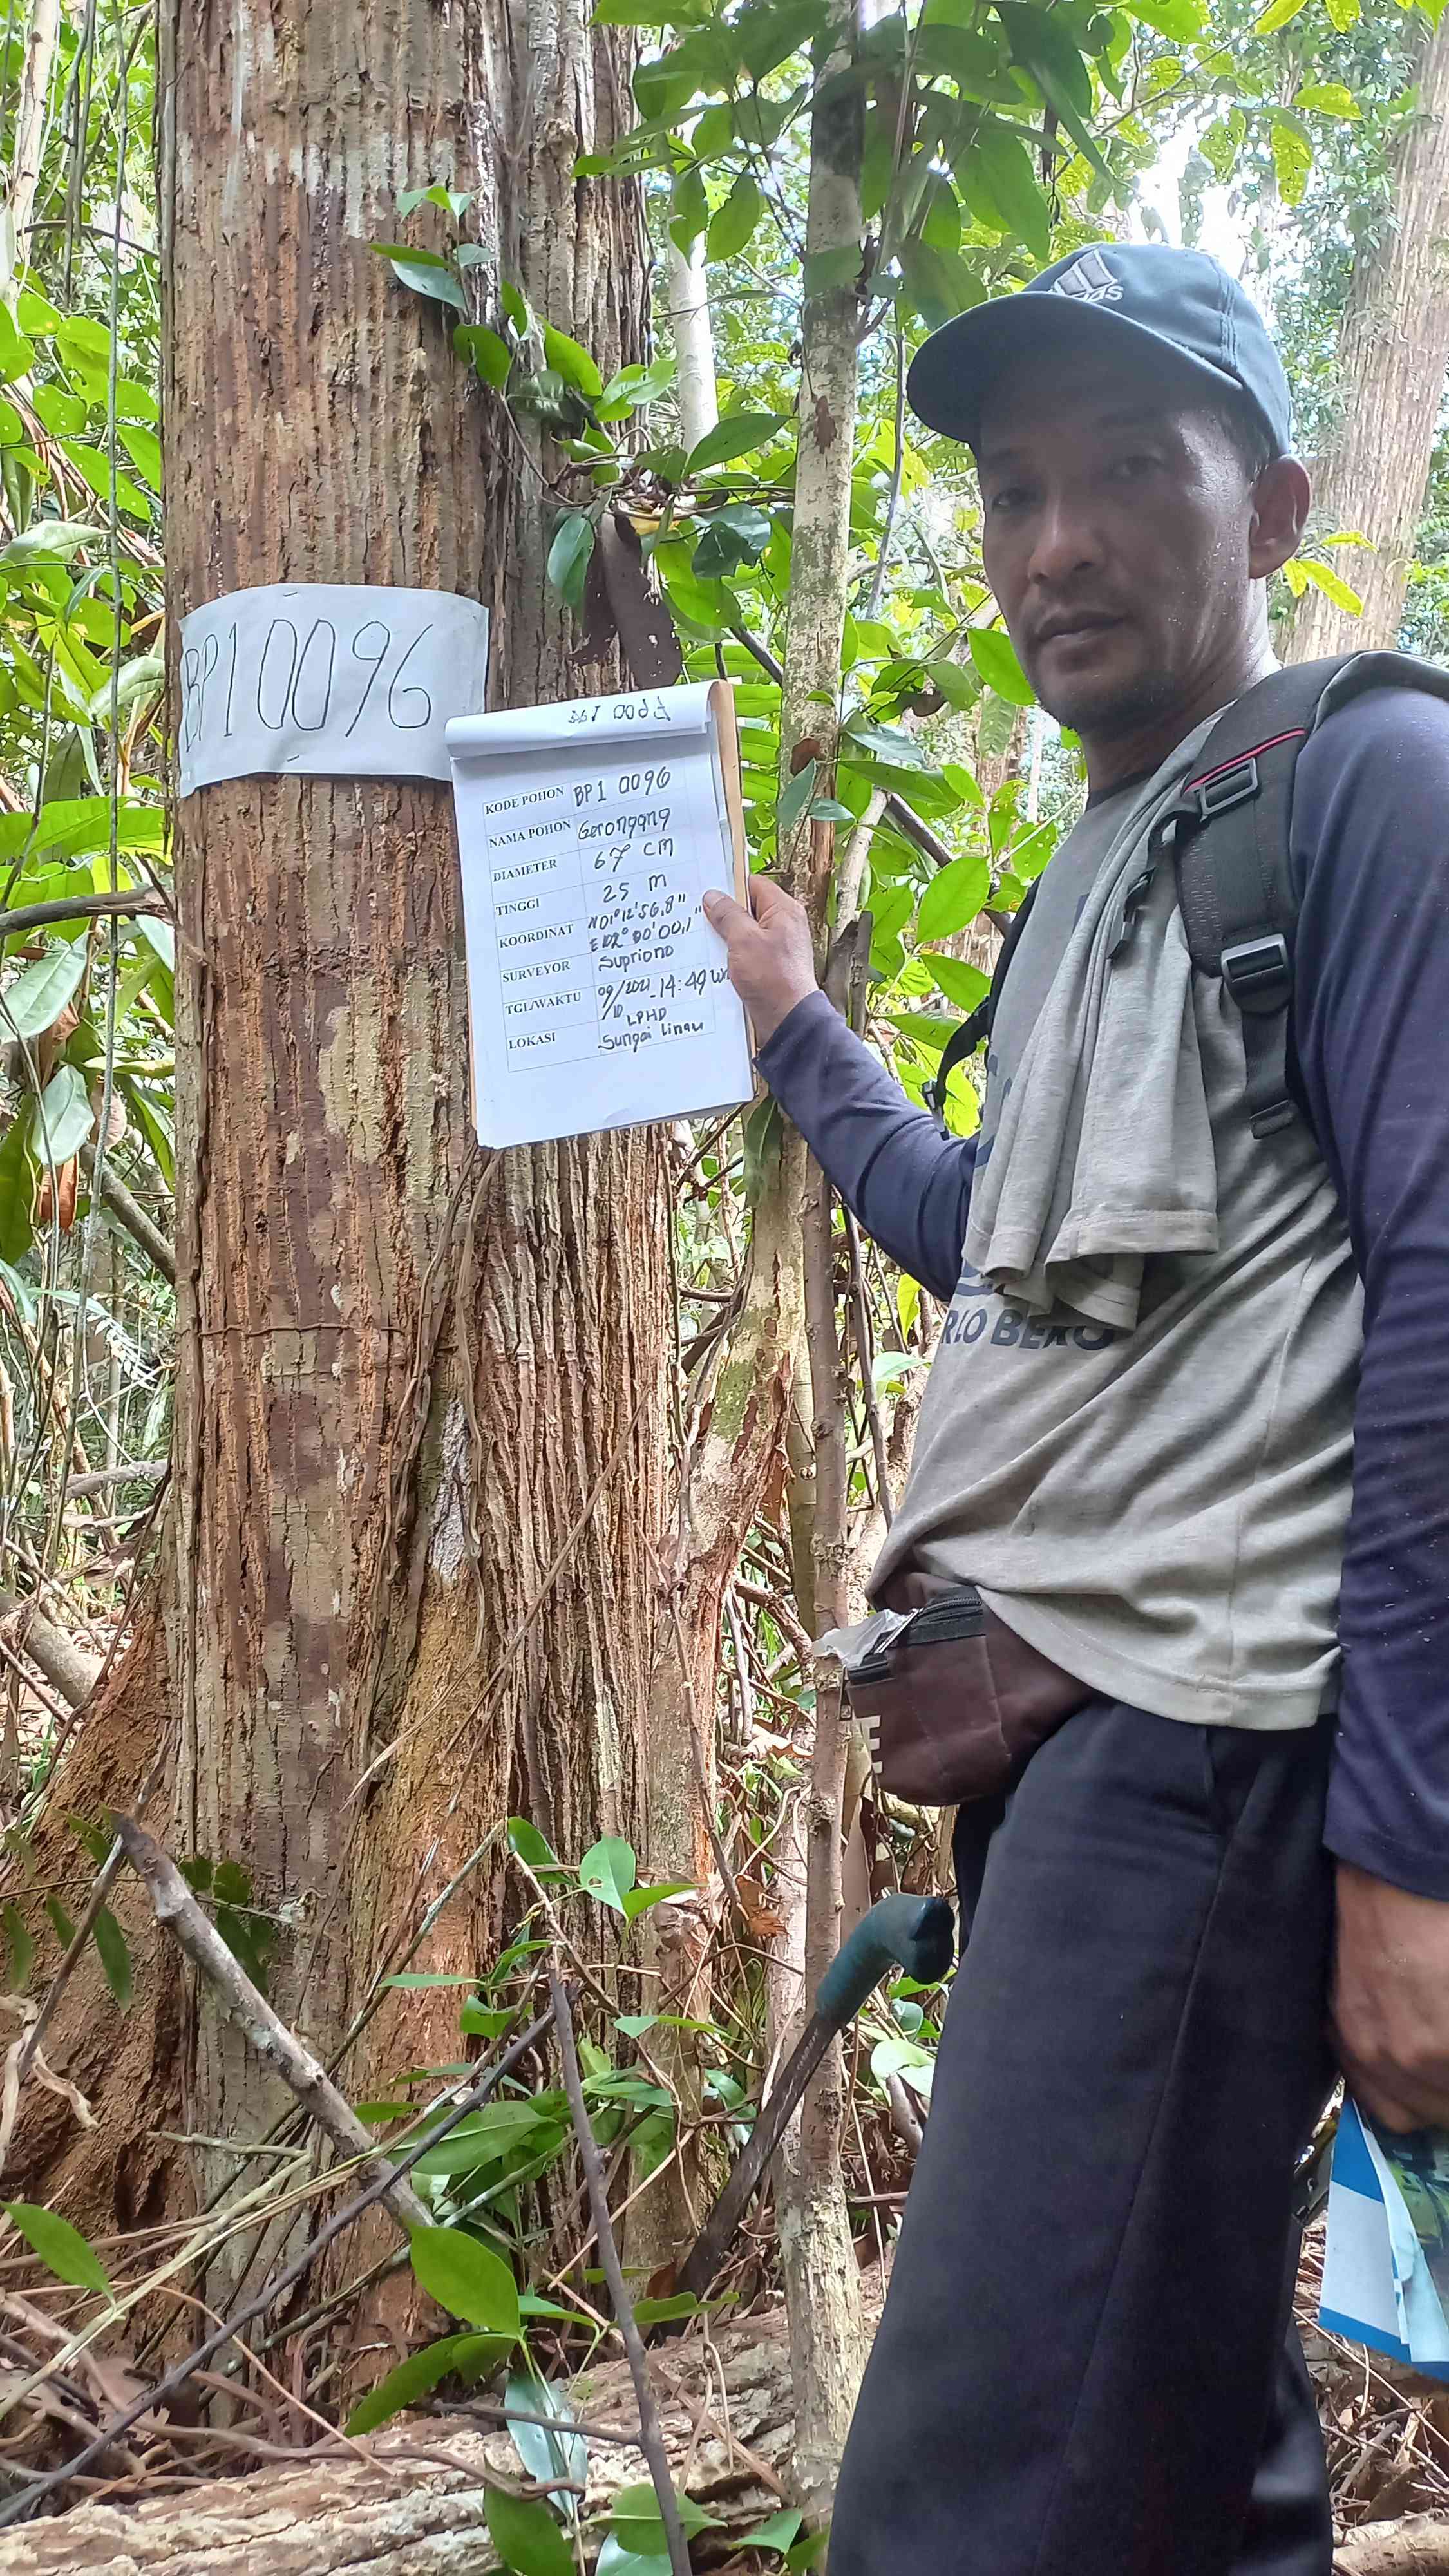 adidas
BP1 0096
KODE POHON BP1 0096
NAMA POHON Geronggang
DIAMETER 67 CM
TINGGI 25 M
KOORDINAT N01°12'56,8"
E102° 00'00,1"
SURVEYOR Supriono
TGL/WAKTU 09/10/2021 - 14:49
LOKASI LPHD
Sungai Linau
RLO BEKO